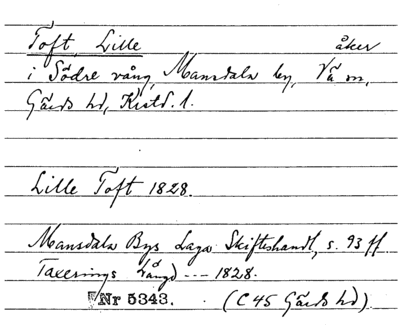 Toft, Lille åker
i Södre vång, Mansdala by, Vä sn,
Gärds hd, Kristd. l.
Lille Toft 1828.
Mansdala Bys Laga Skifteshandl, s. 93 ff
Taxerings Längd --- 1828.
Nr 5343. (C 45 Gärds hd).